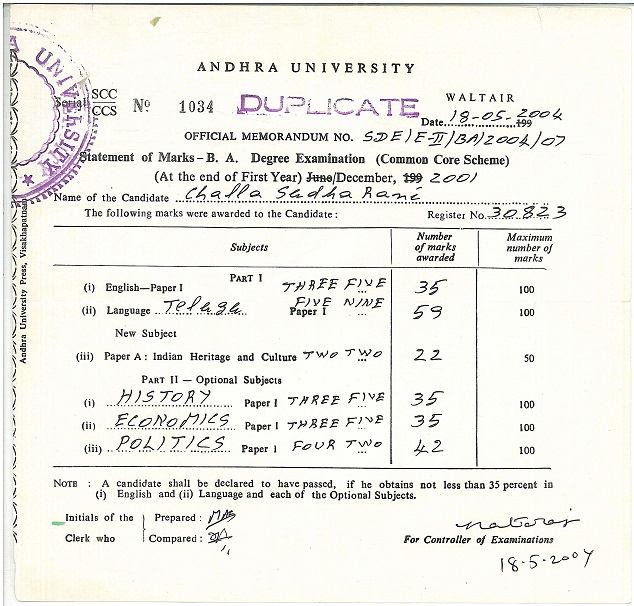 ANDHRA UNIVERSITY
WALTAIR
Serial SCC/CCS No 1034 DUPLICATE Date 18-05-2004 199
OFFICIAL MEMORANDUM NO. SDE/E-II/BA/2004/07
Statement of Marks – B. A. Degree Examination (Common Core Scheme)
(At the end of First Year) June/December, 199 2001
Name of the Candidate Challa Sudha Rani
The following marks were awarded to the Candidate : Register No. 30823
Subjects Number of marks awarded Maximum number of marks
PART I
(i) English—Paper I THREE FIVE 35 100
(ii) Language Telugu Paper I FIVE NINE 59 100
New Subject
(iii) Paper A : Indian Heritage and Culture TWO TWO 22 50
PART II — Optional Subjects
(i) HISTORY Paper I THREE FIVE 35 100
(ii) ECONOMICS Paper I THREE FIVE 35 100
(iii) POLITICS Paper I FOUR TWO 42 100
NOTE : A candidate shall be declared to have passed, if he obtains not less than 35 percent in
(i) English and (ii) Language and each of the Optional Subjects.
Initials of the Prepared :
Clerk who Compared :
For Controller of Examinations
18-5-2004
Andhra University Press, Visakhapatnam
UNIVERSITY